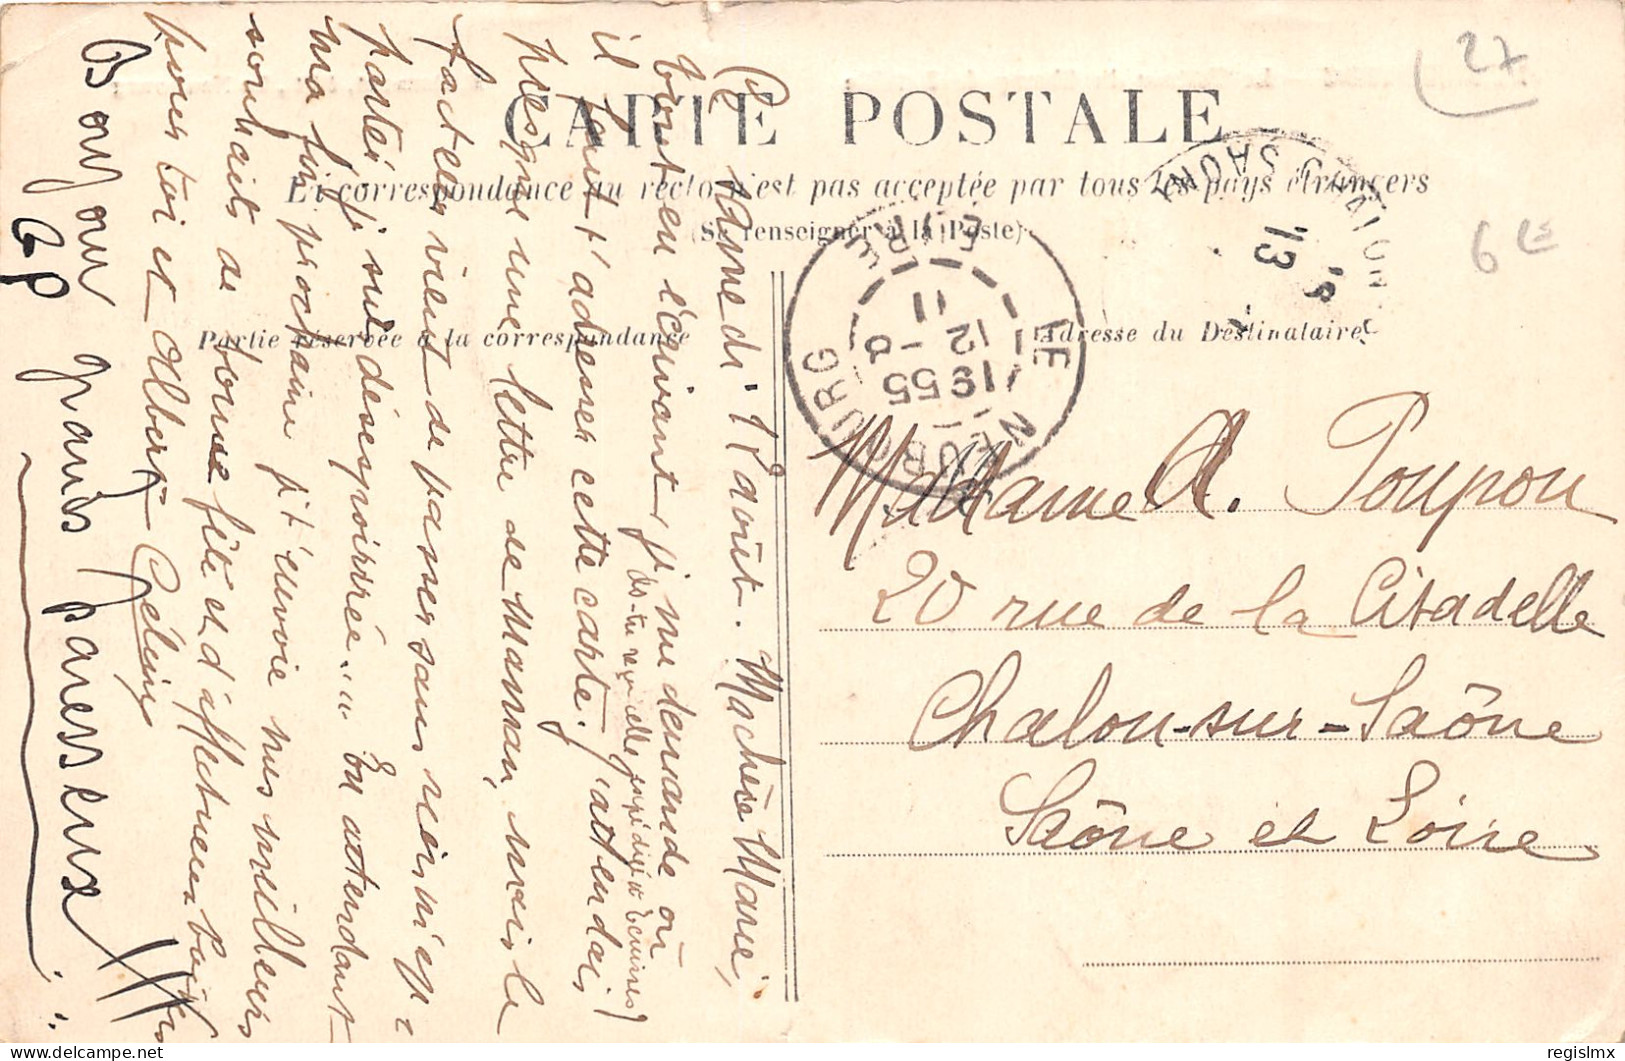 27
6 €
CARTE POSTALE
La correspondance au recto n'est pas acceptée par tous les pays étrangers
(Se renseigner à la Poste)
Partie réservée à la correspondance
Adresse du Destinataire
LE NEUBOURG
EURE
1955
12 - 8
11
CHALON S SAONE
13 - 8
Madame A. Poupon
20 rue de la Citadelle
Chalon-sur-Saône
Saône et Loire
Ce Mardi 12 août. Ma chère Marie,
tout en t'écrivant, j' me demande où
il faut t'adresser cette carte. J'attendais
(As-tu reçu celle expédiée
presque une lettre de Maman, mais le
facteur vient de passer sans rien m'ap-
porter, j' suis désespoirée.... En attendant
ma fin prochaine j' t'envoie mes meilleurs
souhaits de bonne fête et d'affectueux baisers
pour toi et Albert Céliny
Bonjour grands paresseux
GP
regislmx